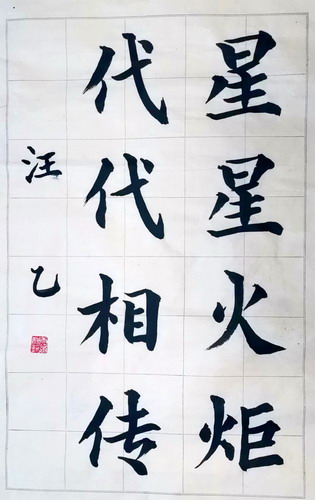 星星火炬
代代相传
汪乙